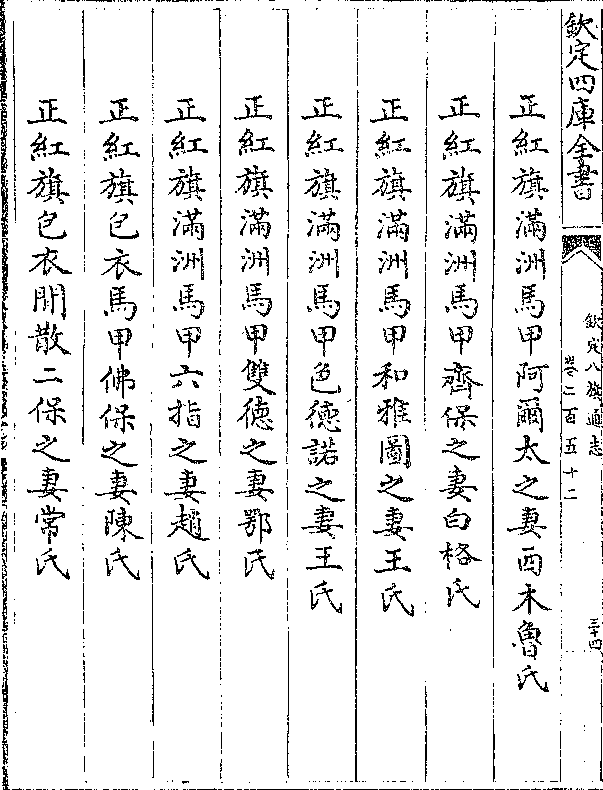 欽定四庫全書
欽定八旗通志
卷二百五十二
三十四
正紅旗滿洲馬甲阿爾太之妻西木魯氏
正紅旗滿洲馬甲齊保之妻白格氏
正紅旗滿洲馬甲和雅圖之妻王氏
正紅旗滿洲馬甲色德諾之妻王氏
正紅旗滿洲馬甲雙德之妻鄂氏
正紅旗滿洲馬甲六指之妻趙氏
正紅旗包衣馬甲佛保之妻陳氏
正紅旗包衣閒散二保之妻常氏